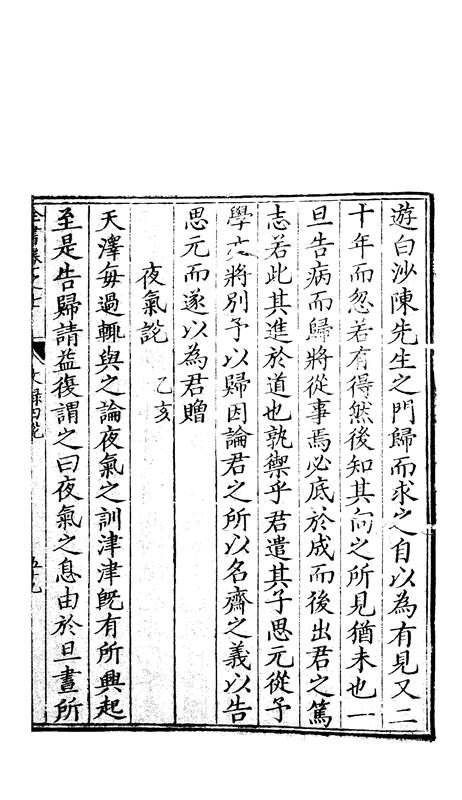 遊白沙陳先生之門歸而求之自以為有見又二
十年而忽若有得然後知其向之所見猶未也一
旦告病而歸將從事焉必底於成而後出君之篤
志若此其進於道也孰禦乎君遣其子思元從予
學亦將別予以歸因論君之所以名齋之義以告
思元而遂以為君贈
夜氣說 乙亥
天澤每過輒與之論夜氣之訓津津既有所興起
至是告歸請益復謂之曰夜氣之息由於旦晝所
全書卷之七 文錄四說 五十九